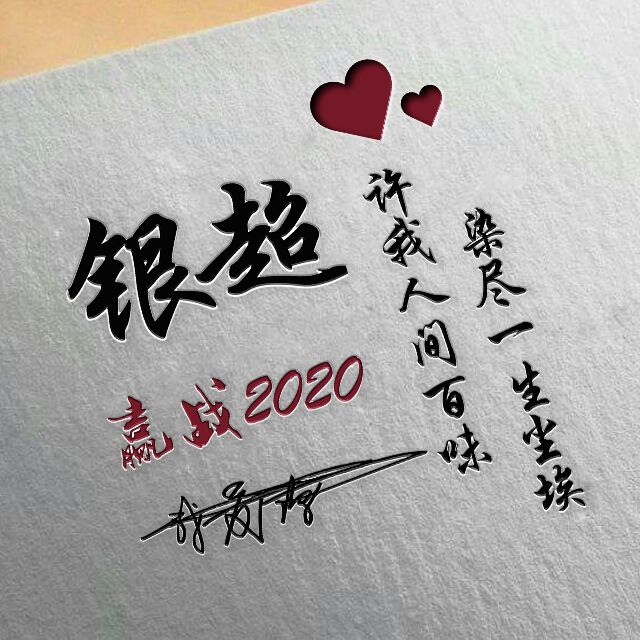 银超
赢战2020
许我人间百味
染尽一生尘埃